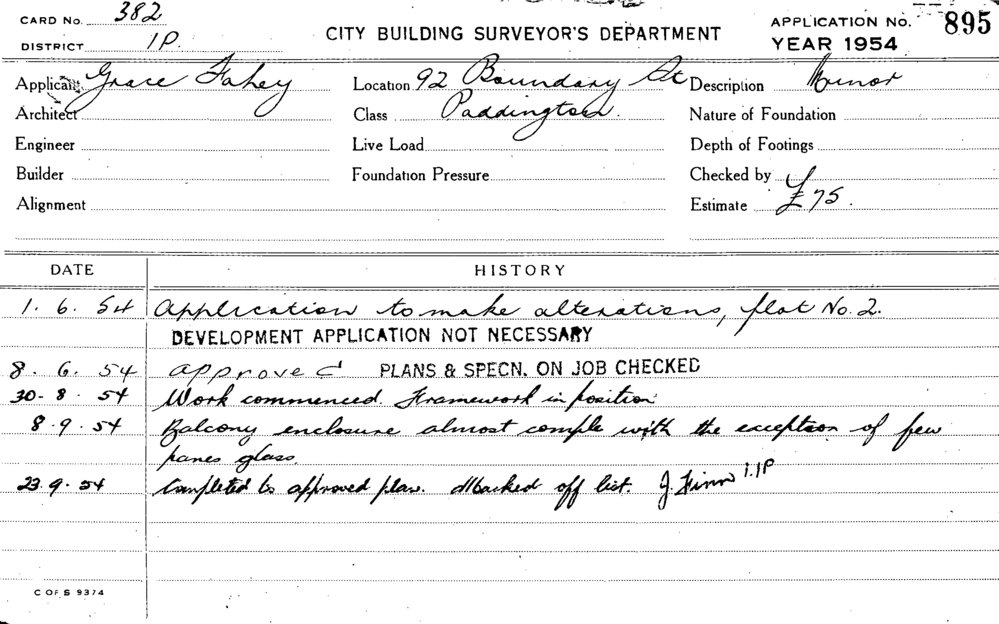 CARD No. 382
DISTRICT 1P.
CITY BUILDING SURVEYOR'S DEPARTMENT
APPLICATION No. 895
YEAR 1954
Applicant Grace Fahey
Location 92 Boundary St
Description Minor
Architect
Class Paddington.
Nature of Foundation
Engineer
Live Load
Depth of Footings
Builder
Foundation Pressure
Checked by
Alignment
Estimate £75.
DATE HISTORY
1. 6. 54 Application to make alterations, flat No. 2.
DEVELOPMENT APPLICATION NOT NECESSARY
8. 6. 54 approved PLANS & SPECN. ON JOB CHECKED
30-8.54 Work commenced. Framework in position
8.9.54 Balcony enclosure almost comple with the exception of few
panes glass.
23.9.54 Completed to approved plan. Marked off list. J. Finn 1.1P
C OF S 9374